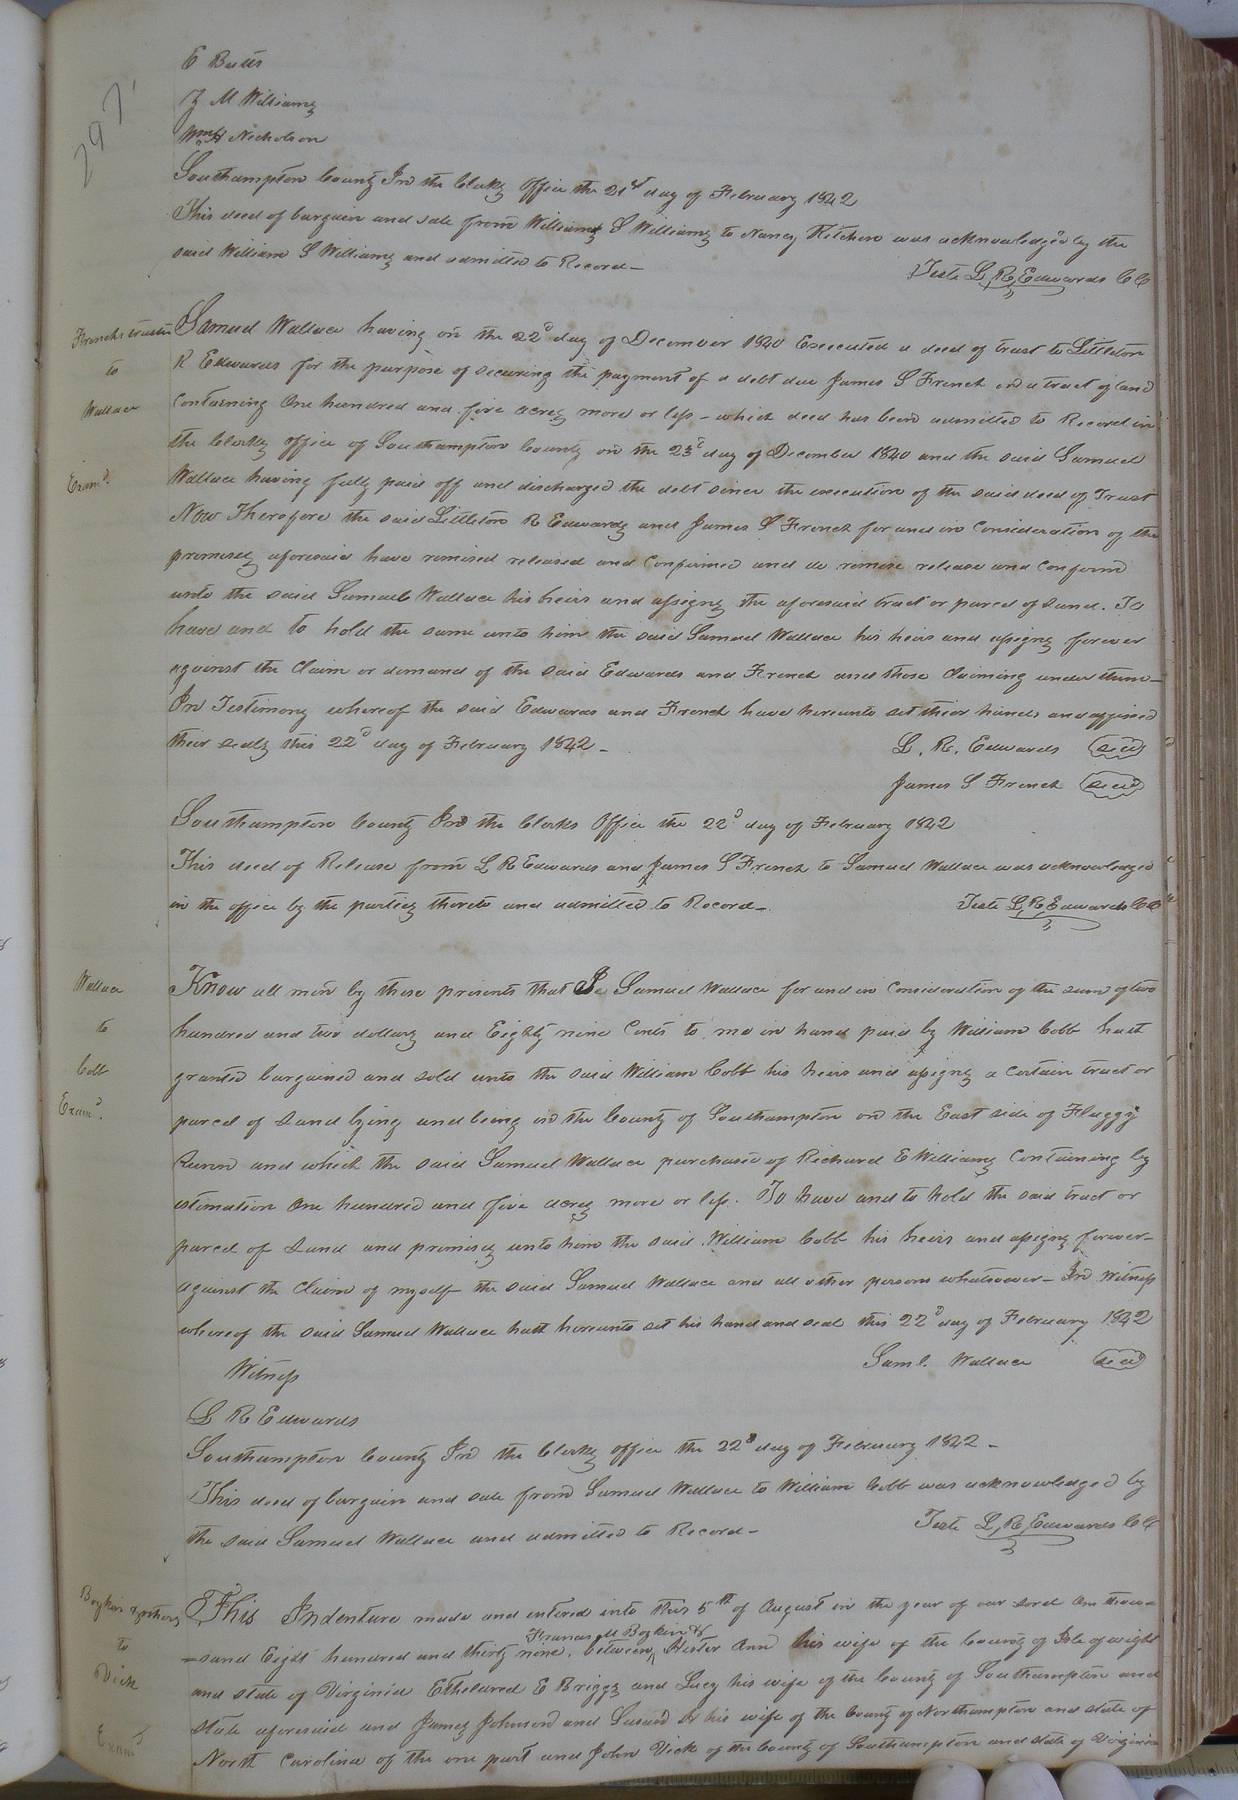 297
E Butts
J M Williams
Wm H Nicholson
Southampton County In the Clerks Office the 21st day of February 1842
This deed of bargain and sale from Williams S Williams to Nancy Kitchen was acknowledged by the
said William S Williams and admitted to Record—
Teste L, R, Edwards CC
Frenchs trustee
to
Wallace
Exam.d
Samuel Wallace having on the 22d day of December 1840 Executed a deed of trust to Littleton
R Edwards for the purpose of securing the payment of a debt due James S French on a tract of land
Containing One hundred and five acres more or less – which deed has been admitted to Record in
the Clerks office of Southampton County on the 23d day of December 1840 and the said Samuel
Wallace having fully paid off and discharged the debt since the execution of the said deed of Trust
Now Therefore the said Littleton R Edwards and James S French for and in Consideration of the
premises aforesaid have remised released and Confirmed and do remise release and Confirm
unto the said Samuel Wallace his heirs and assigns the aforesaid tract or parcel of Land. To
have and to hold the same unto him the said Samuel Wallace his heirs and assigns forever
against the Claim or demand of the said Edwards and French and those Claiming under them—
In Testimony whereof the said Edwards and French have hereunto set their hands and affixed
their seals this 22d day of February 1842 –
L. R. Edwards (seal)
James S French (seal)
Southampton County In the Clerks Office the 22d day of February 1842
This deed of Release from L R Edwards and James S French to Samuel Wallace was acknowledged
in the office by the parties thereto and admitted to Record–
Teste L, R, Edwards CC
Wallace
to
Cobb
Exam.d
Know all men by these presents that I Samuel Wallace for and in Consideration of the sum of two
hundred and two dollars and Eighty nine Cents to me in hand paid by William Cobb hath
granted bargained and sold unto the said William Cobb his heirs and assigns a Certain tract or
parcel of Land lying and being in the County of Southampton on the East side of Flaggy
Run and which the said Samuel Wallace purchased of Richard E Williams Containing by
estimation One hundred and five acres more or less. To have and to hold the said tract or
parcel of Land and premises unto him the said William Cobb his heirs and assigns forever–
against the Claim of myself the said Samuel Wallace and all other persons whatsoever – In Witness
whereof the said Samuel Wallace hath hereunto set his hand and seal this 22d day of February 1842
Witness
Saml. Wallace (seal)
L R Edwards
Southampton County In the Clerks office the 22d day of February 1842 –
This deed of bargain and sale from Samuel Wallace to William Cobb was acknowledged by
the said Samuel Wallace and admitted to Record–
Teste L, R, Edwards CC
Boykin & others
to
Vick
Exam.d
This Indenture made and entered into this 5th of August in the year of our Lord One thou–
Francis M Boykin &
–sand Eight hundred and thirty nine, between Hester Ann his wife of the County of Isle of wight
and state of Virginia Etheldred E Briggs and Lucy his wife of the County of Southampton and
state aforesaid and James Johnson and Susan his wife of the County of Northampton and state of
North Carolina of the one part and John Vick of the County of Southampton and state of Virginia